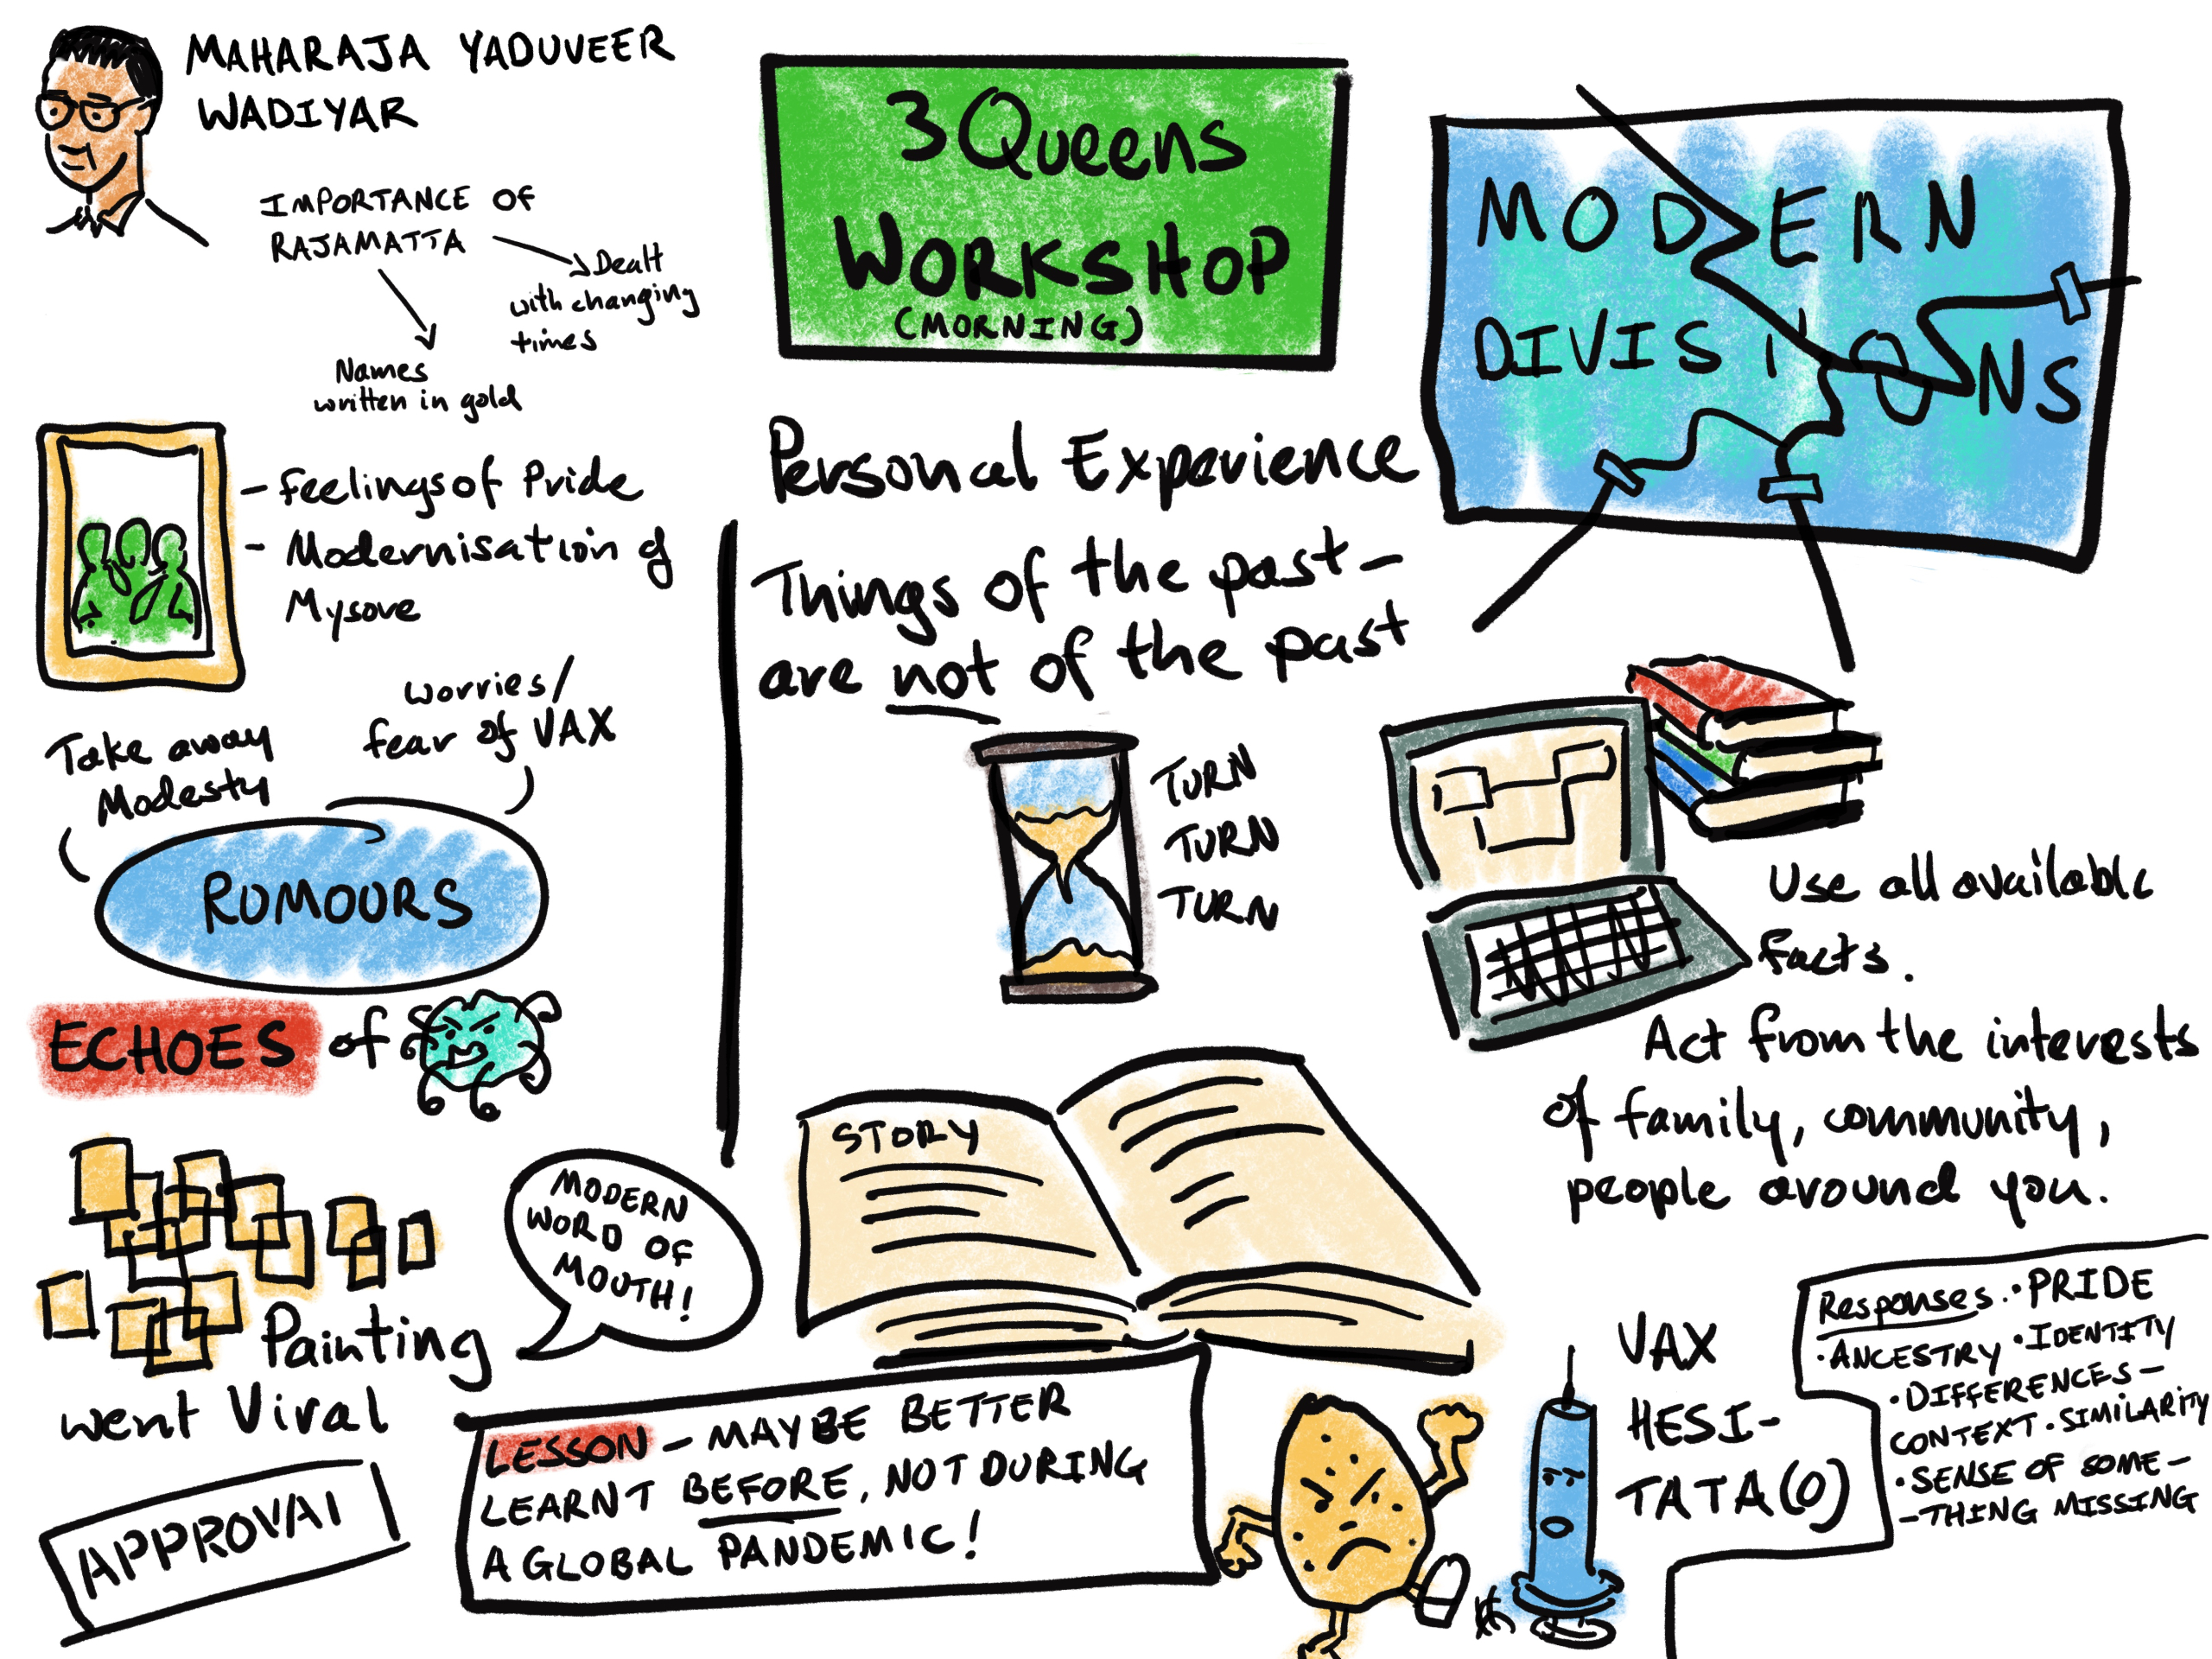 MAHARAJA YADUVEER
WADIYAR
IMPORTANCE OF
RAJAMATTA
Dealt
with changing
times
Names
written in gold
- Feelings of Pride
- Modernisation of
Mysore
Take away
Modesty
worries/
fear of VAX
RUMOURS
ECHOES of
Painting
went Viral
MODERN
WORD OF
MOUTH!
APPROVAL
3 Queens
WORKSHOP
(MORNING)
Personal Experience
Things of the past-
are not of the past
TURN
TURN
TURN
STORY
LESSON - MAYBE BETTER
LEARNT BEFORE, NOT DURING
A GLOBAL PANDEMIC!
MODERN
DIVISIONS
Use all available
facts.
Act from the interests
of family, community,
people around you.
VAX
HESI-
TATA(O)
Responses • PRIDE
• ANCESTRY • IDENTITY
• DIFFERENCES -
CONTEXT • SIMILARITY
• SENSE OF SOME-
-THING MISSING